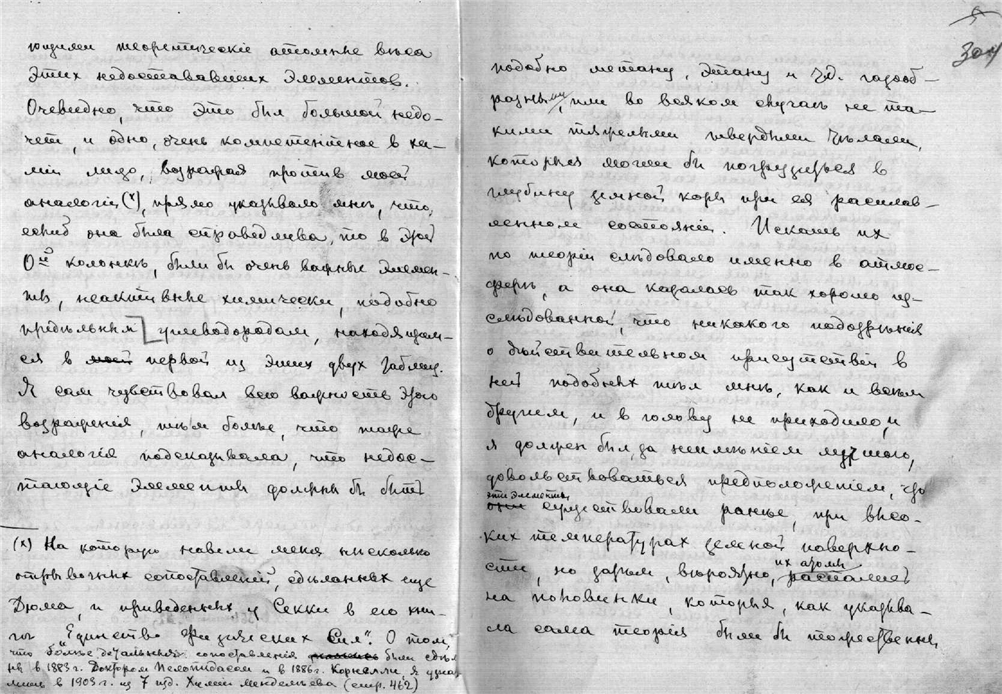 ющими теоретическіе атомные вѣса
этих недостававших элементов.
Очевидно, что это был большой недо-
чет, и одно, очень компетентное в хи-
міи лицо, возражая против моей
аналогіи(х), прямо указывало мнѣ, что,
еслиб она была справедлива, то в этой
0й колонкѣ, были бы очень важные элемен-
ты, неактивные химически, подобно
предѣльным углеводородам, находящим-
ся в первой из этих двух таблиц.
Я сам чувствовал всю важность этого
возраженія, тѣм болѣе, что таже
аналогія подсказывала, что недос-
тающіе элементы должны бы быть
(х) На которую навели меня нѣсколько
отрывочных сопоставленій, сдѣланных еще
Дюма, и приведенных у Секки в его кни-
гѣ „Единство физических сил". О том,
что болѣе детальныя сопоставленія были сдѣла-
ны в 1883 г. Доктором Пелопидасом и в 1886 г. Корнелли, я узнал
лишь в 1903 г. из 7 изд. Химіи Менделѣева (стр. 462)
304
подобно метану, этану и т.д. газооб-
разными, или во всяком случаѣ не та-
кими тяжелыми твердыми тѣлами,
которыя могли бы погрузиться в
глубину земной коры при ея расплав-
ленном состояніи. Искать их
по теоріи слѣдовало именно в атмос-
ферѣ, а она казалась так хорошо из-
слѣдованной, что никакого подозрѣнія
о дѣйствительном присутствіи в
ней подобных тѣл мнѣ, как и всѣм
другим, и в голову не приходило, и
я должен был, за неимѣніем лучшаго,
довольствоваться предположеніем, что
эти элементы
существовали ранѣе, при высо-
ких температурах земной поверхно-
сти, но затѣм, вѣроятно, их атомы распались
на половинки, которыя, как указыва-
ла сама теорія были бы тождественны